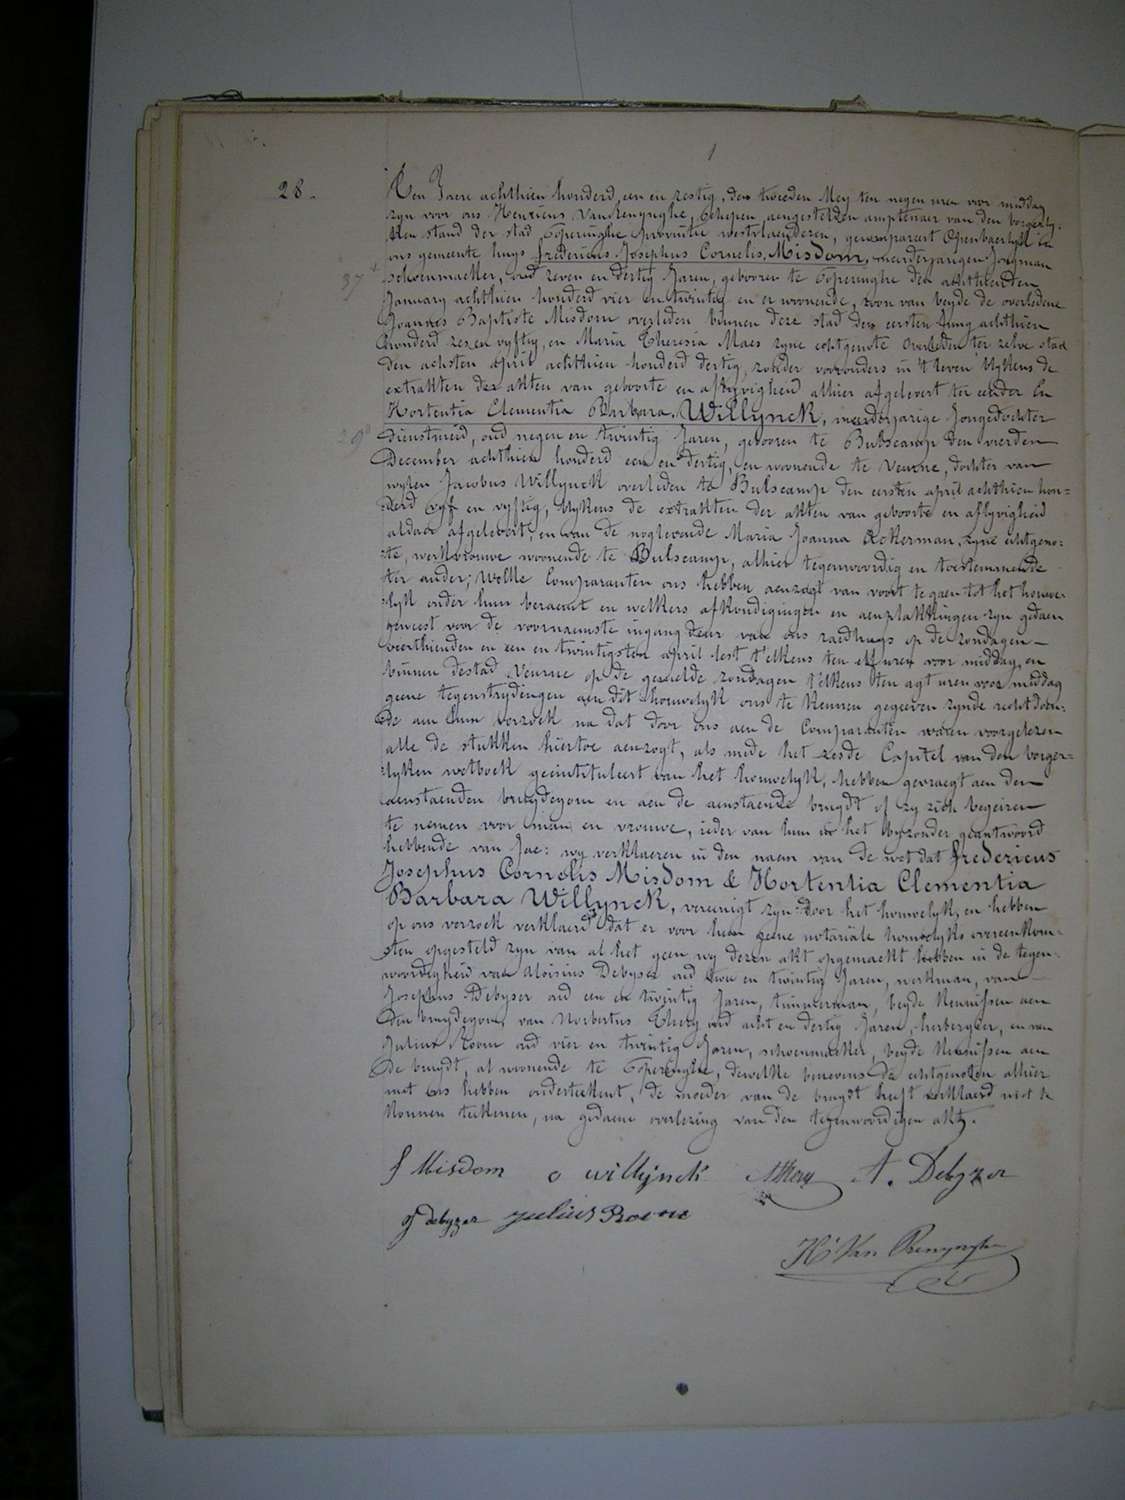 1
28.
Den Jaere achthien honderd een en zestig, den tweeden Mey ten negen uren voor middag
zyn voor ons Henricus Vanrenynghe, Schepen aengestelden amptenaer van den borgerly-
ken stand der stad Poperinghe provintie westvlaenderen, gecompareert Openbaerlyk in
ons gemeente huys fredericus Josephus Cornelis Misdom, meerderjarigen Jongman
schoenmaeker, oud zeven en dertig Jaren, gebooren te Poperinghe den achthienden
37
January achthien honderd vier en twintig en er woonende, zoon van beyde de overledene
Joannes Baptiste Misdom overleden binnen deze stad den eersten Juny achthien
honderd zes en vyftig, en Maria Theresia Maes zyne echtgenote overleden ter zelve stad
den achsten april achthien honderd dertig, zonder voorouders in 't leven blykens de
extrakten der akten van geboorte en aflyvigheid alhier afgelevert ter eender En
Hortentia Clementia Barbara Willynck, meerderjarige Jongedochter
29
dienstmeid, oud negen en twintig Jaren, gebooren te Bulscamp den vierden
December achthien honderd een en dertig, en woonende te Veurne, dochter van
wylen Jacobus Willynck overleden te Bulscamp den eersten april achthien hon=
derd vyf en vyftig, blykens de extrakten der akten van geboorte en aflyvigheid
aldaer afgelevert, en van de noglevende Maria Joanna Ackerman, zyne echtgeno-
te, werkvrouwe woonende te Bulscamp, alhier tegenwoordig en toestemmende
ter ander; Welke Comparanten ons hebben aenzogt van voort te gaen tot het houwe-
lyk onder hun beraemt en welkers afkondigingen en aenplakkingen zyn gedaen
geweest voor de voornaemste ingang deur van ons raedhuys op de zondagen
veerthienden en een en twintigsten april lest t'elkens ten elf uren voor middag, en
binnen de stad Veurne op de gemelde zondagen t'elkens ten agt uren voor middag
geene tegenstrydingen aen dit houwelyk ons te kennen gegeeven zynde recht doen-
de aen hun verzoek na dat door ons aen de Comparanten waren voorgelezen
alle de stukken hiertoe aenzogt, als mede het zesde Capitel van den borger=
lyken wetboek geintituleert van het houwelyk, hebben gevraegt aen den
aenstaenden bruydegom en aen de aenstaende bruydt of zy zich begeiren
te nemen voor man en vrouwe, ieder van hun in het byzonder geantwoord
hebbende van Jae: wy verklaeren in den naem van de wet dat fredericus
Josephus Cornelis Misdom & Hortentia Clementia
Barbara Willynck, vereenigt zyn door het houwelyk, en hebben
op ons verzoek verklaerd dat er voor hun geene notariale houwelyks overeenkom-
sten opgesteld zyn van al het geen wy dezen akt opgemaekt hebben in de tegen-
woordigheid van Aloisius Debyser oud twee en twintig Jaren, werkman, van
Josephus Debyser oud een en twintig Jaren, timmerman, beyde Kennissen aen
den bruydegom, van Norbertus Thery oud acht en dertig Jaren, herbergier, en van
Julius Roone oud vier en twintig Jaren, schoenmaeker, beyde Kennissen aen
de bruydt, al woonende te Poperinghe, dewelke benevens de echtgenoten alhier
met ons hebben onderteekent, de moeder van de bruydt heeft verklaerd niet te
konnen teekenen, na gedaene overlezing van den tegenwoordigen akt.
f Misdom o willijnck NThery A. Debyzer
j debyzer julius Roone
H. Van Renynghe